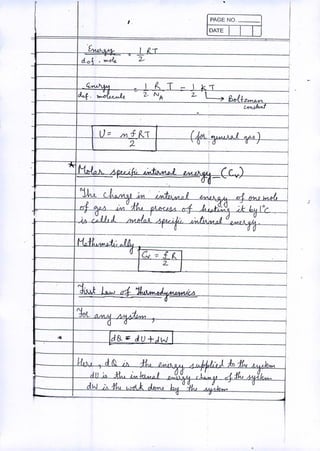 PAGE NO.
DATE
Energy / dof . mole = 1/2 RT
Energy / dof . molecule = 1/2 R/NA T = 1/2 k T → Boltzman constant
U = n f RT / 2 (for general gas)
* Molar specific internal energy (Cv)
The change in internal energy of one mole
of gas in the process of heating it by 1°C
is called molar specific internal energy.
Mathematically,
Cv = f R / 2
First Law of Thermodynamics
For any system,
* dQ = dU + dW
Here, dQ is the energy supplied to the system
dU is the internal energy change of the system
dW is the work done by the system